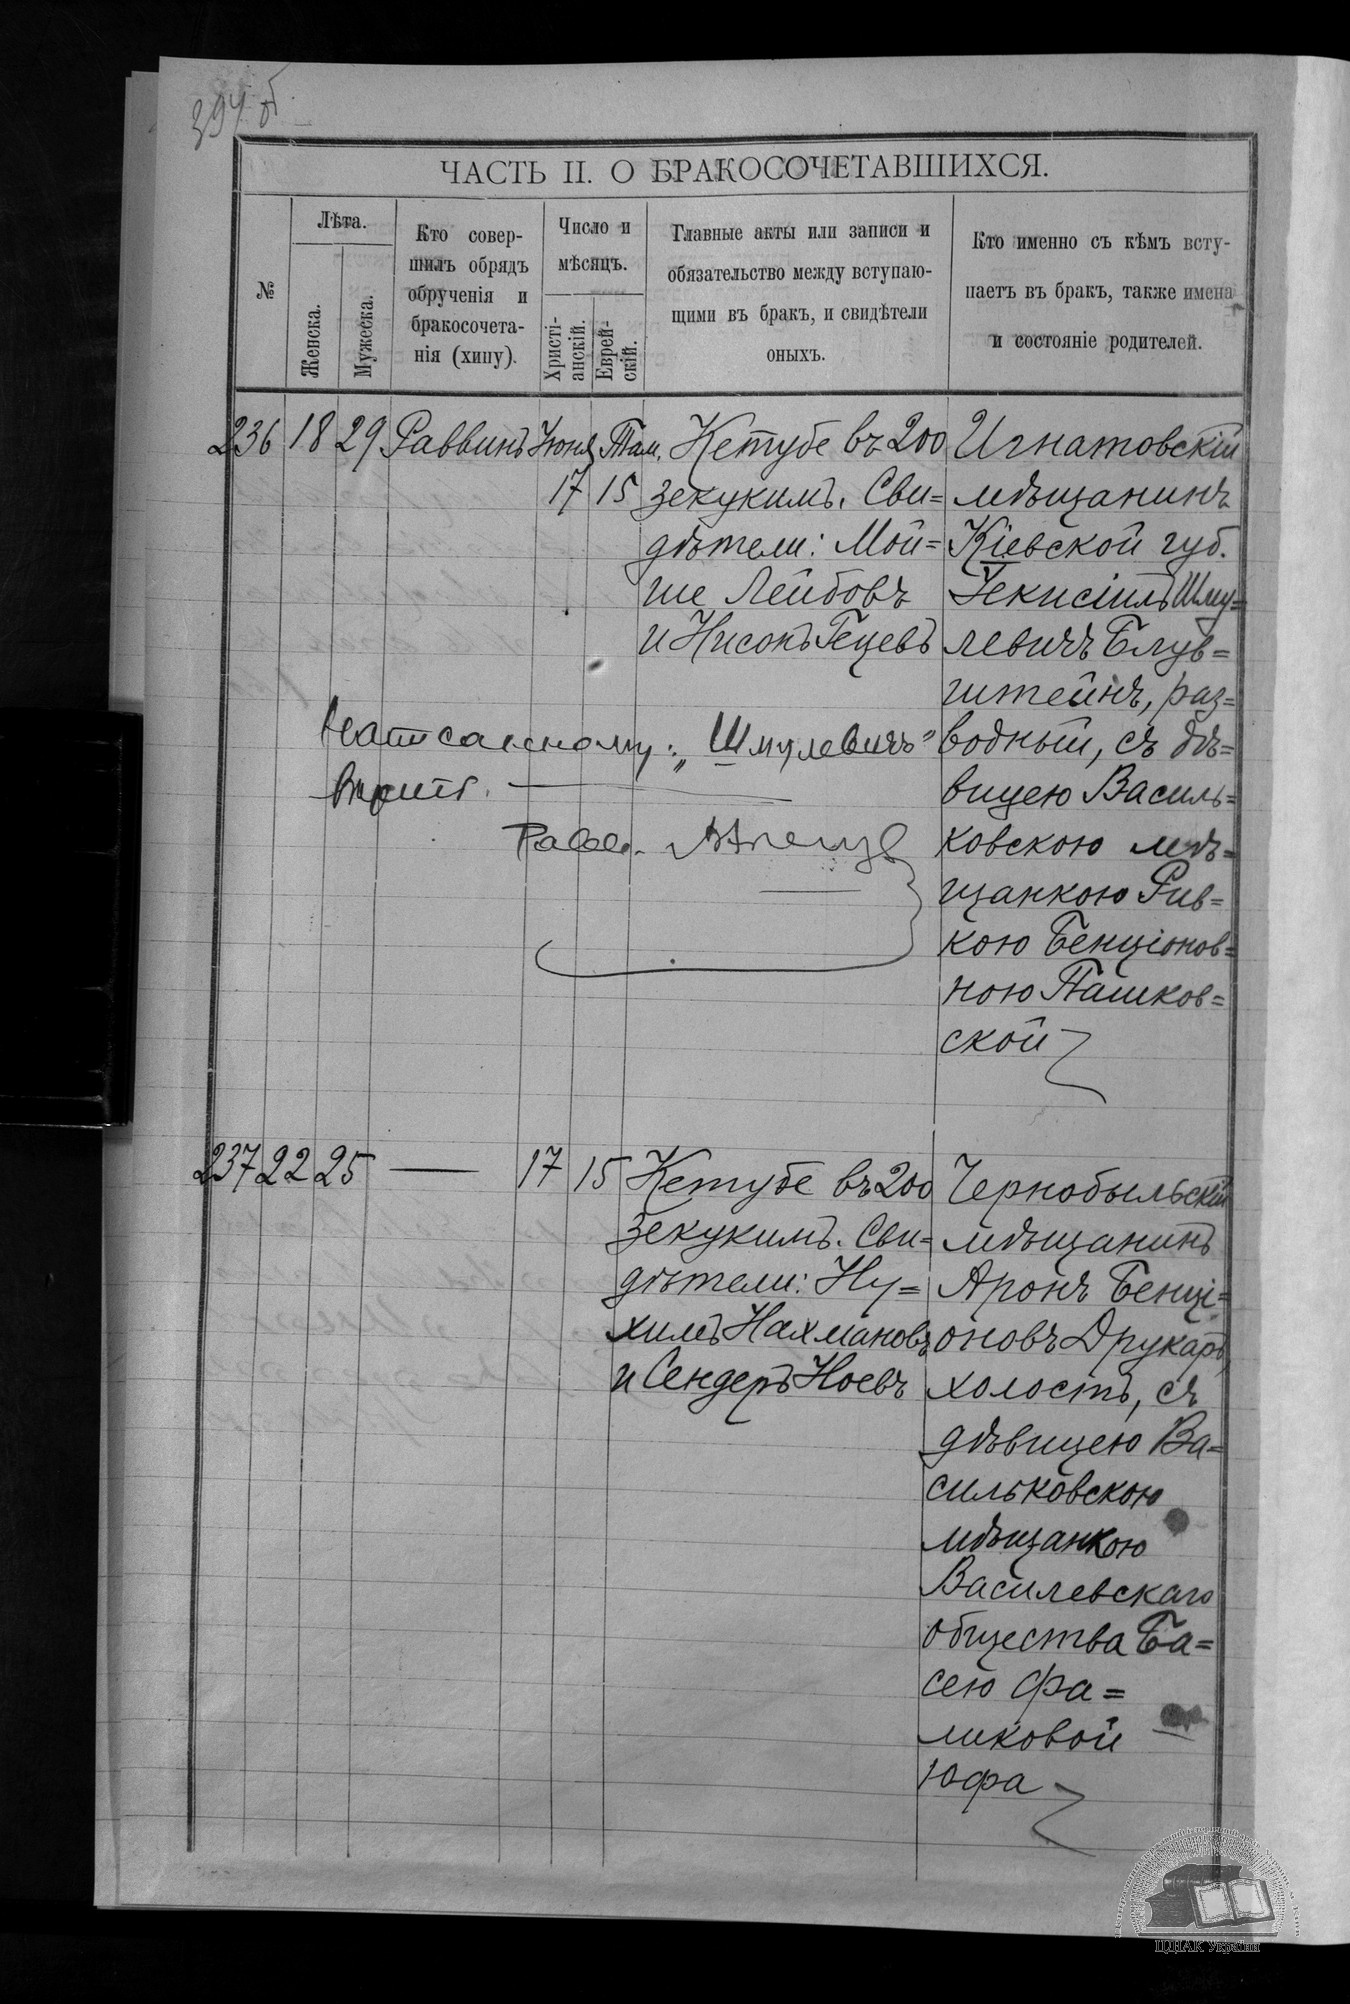 394 об
ЧАСТЬ II. О БРАКОСОЧЕТАВШИХСЯ.
№
Лѣта.
Женска.
Мужеска.
Кто совер-
шилъ обрядъ
обрученія и
бракосочета-
нія (хипу).
Число и
мѣсяцъ.
Христі-
анскій.
Еврей-
скій.
Главные акты или записи и
обязательство между вступаю-
щими въ бракъ, и свидѣтели
оныхъ.
Кто именно съ кѣмъ всту-
паетъ въ бракъ, также имена
и состояніе родителей.
236 18 29 Раввинъ Іюня 17 Там. 15
Кетубе въ 200
зекукимъ. Сви=
дѣтели: Мой=
ше Лейбовъ
и Нисонъ Гецевъ
Игнатовскій
мѣщанинъ
Кіевской губ.
Іекисіилъ Шму=
левичъ Блув=
штейнъ, раз=
водный, съ дѣ=
вицею Василь=
ковскою мѣ=
щанкою Рив=
кою Бенціонов=
ною Пашков=
ской
Написанному: „Шмулевичъ"
вѣрить.
Равв.
237 22 25 — 17 15
Кетубе въ 200
зекукимъ. Сви=
дѣтели: Ну=
химъ Нахмановъ
и Сендеръ Ноевъ
Чернобыльскій
мѣщанинъ
Аронъ Бенці=
оновъ Друкаръ,
холостъ, съ
дѣвицею Ва=
сильковскою
мѣщанкою
Василевскаго
общества Ба=
сею Фа=
ликовой
Юфа
ЦДІАК України